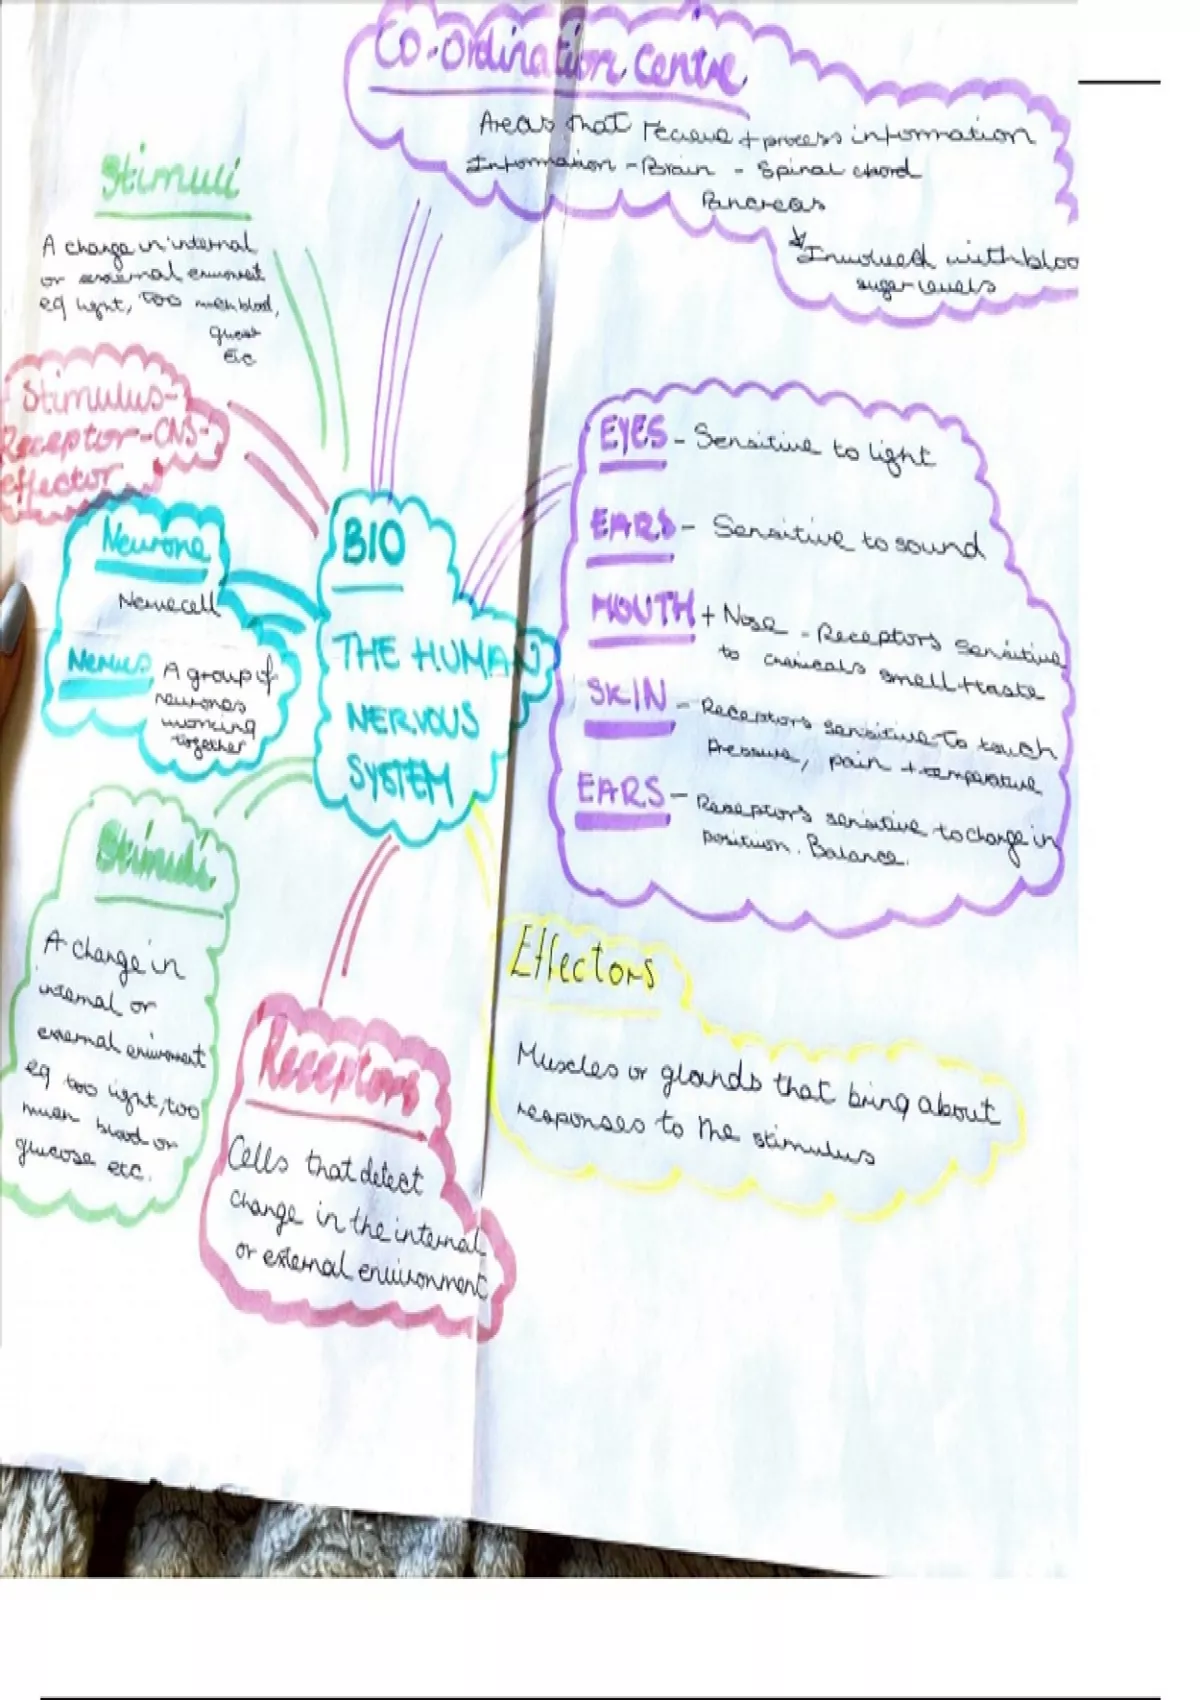 Co-ordination Centre
Areas that recieve + process information
Information - Brain - Spinal chord
Pancreas
Involved with bloo
sugar levels
Stimuli
A change in internal
or external
eg light, too much blood,
Etc
Stimulus-
Receptor-CNS-
effector
Neurone
Nerve cell
Nerves
A group of
neurones
working
together
BIO
THE HUMAN
NERVOUS
SYSTEM
EYES - Sensitive to light
EARS - Sensitive to sound
MOUTH + Nose - Receptors sensitive
to chemicals smell + taste
SKIN - Receptors sensitive to touch
pressure, pain + temperature
EARS - Receptors sensitive to change in
position. Balance.
Stimuli
A change in
internal or
external
eg too light, too
much blood or
glucose etc.
Receptors
Cells that detect
change in the internal
or external environment
Effectors
Muscles or glands that bring about
responses to the stimulus